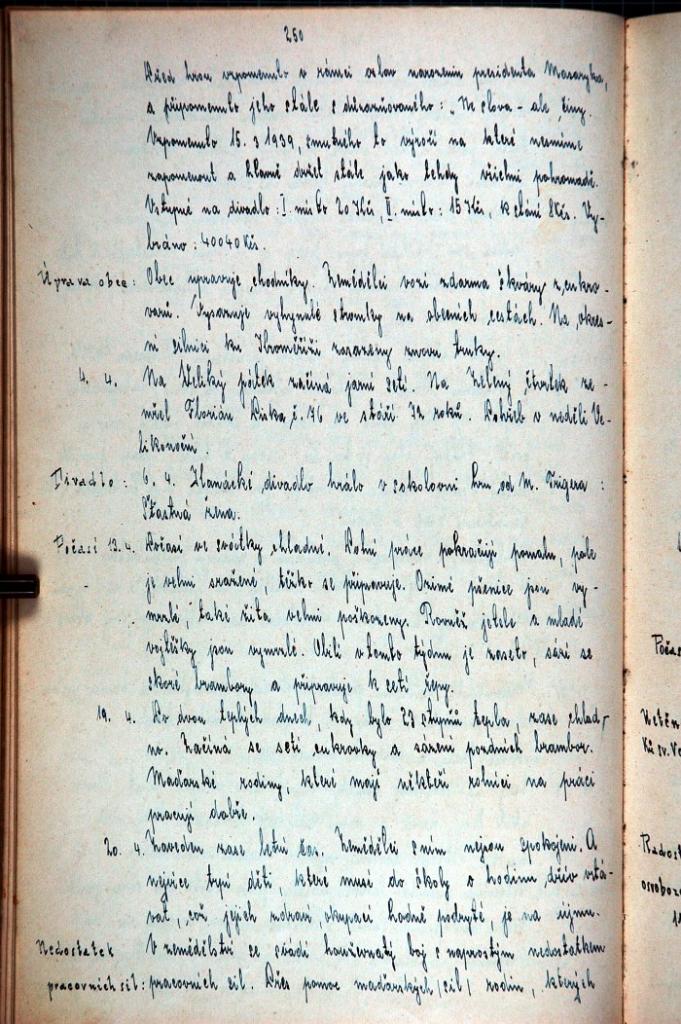 250
Před hrou vzpomenulo v rámci oslav narozenin presidenta Masaryka,
a připomenulo jeho stále zdůrazňovaného: „Ne slova - ale činy.
Vzpomenulo 15. 3 1939, smutného to výročí na které nesmíme
zapomenout a hlavně držet stále jako tehdy všichni pohromadě.
Vstupné na divadlo: I. místo 20 Kčs, II. místo: 15 Kčs, k stání 8 Kčs. Vy-
bráno: 4004 Kčs.
Úprava obce: Obec upravuje chodníky. Zemědělci vozí zdarma škváry z cukro-
varů. Vysazuje vyhynulé stromky na obecních cestách. Na okres-
ní silnici ku Kroměříži zasazeny znovu
4. 4. Na Veliký pátek začíná jarní setí. Na Zelený čtvrtek ze-
mřel Florián č. 76 ve stáří 72 roků. Pohřeb v neděli Ve-
likonoční.
Divadlo: 6. 4. Hanácké divadlo hrálo v sokolovni hru od M. Trigera:
Šťastná žena.
Počasí 13. 4. Počasí ve svátky chladné. Polní práce pokračují pomalu, pole
je velmi sražené, těžko se připravuje. Ozimé pšenice jsou vy-
mrzlé, také žita velmi poškozeny. Rovněž jetele a mladé
vojtěšky jsou vymrzlé. Obilí v tomto týdnu je zaseto, sází se
skoré brambory a připravuje k setí řepy.
19. 4. Po dvou teplých dnech, kdy bylo 23 stupňů tepla, zase chlad-
no. Začíná se setí cukrovky a sázení pozdních brambor.
Maďarské rodiny, které mají někteří rolníci na práci
pracují dobře.
20. 4. Zaveden zase letní čas. Zemědělci s ním nejsou spokojeni. A
nejvíce trpí děti, které musí do školy o hodinu dřív vstá-
vat, což jejich zdraví, okupací hodně podryté, je na újmu.
Nedostatek V zemědělství se svádí houževnatý boj s naprostým nedostatkem
pracovních sil: pracovních sil. Přes pomoc maďarských /sil/ rodin, kterých
Počas
Radost
osvoboz